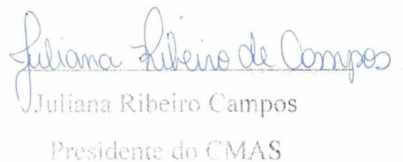 Juliana Ribeiro de Campos
Juliana Ribeiro Campos
Presidente do CMAS